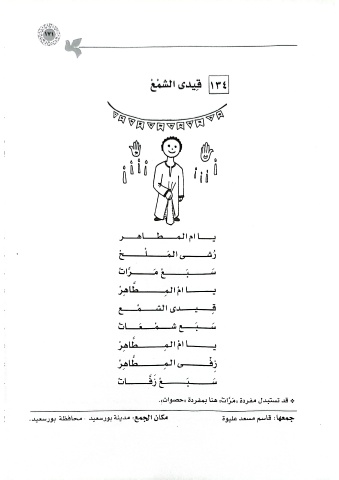 ١٧١
١٣٤ قيدى الشمْعْ
يـا ام المـطـاهـر
رُشـى المـلـح
سـبـع مـرَّات
يـا امْ المِـطَّاهِرْ
قِـيـدى الشـمْـع
سـبـع شـمْـعَـات
يـا امْ المِـطَّاهِرْ
زِفِّـى المِـطَّاهِرْ
سـبـع زَفَّـات
* قد تستبدل مفردة «مَرَّات» هنا بمفردة «حصوات».
جمعها: قاسم مسعد عليوة مكان الجمع: مدينة بورسعيد - محافظة بورسعيد.